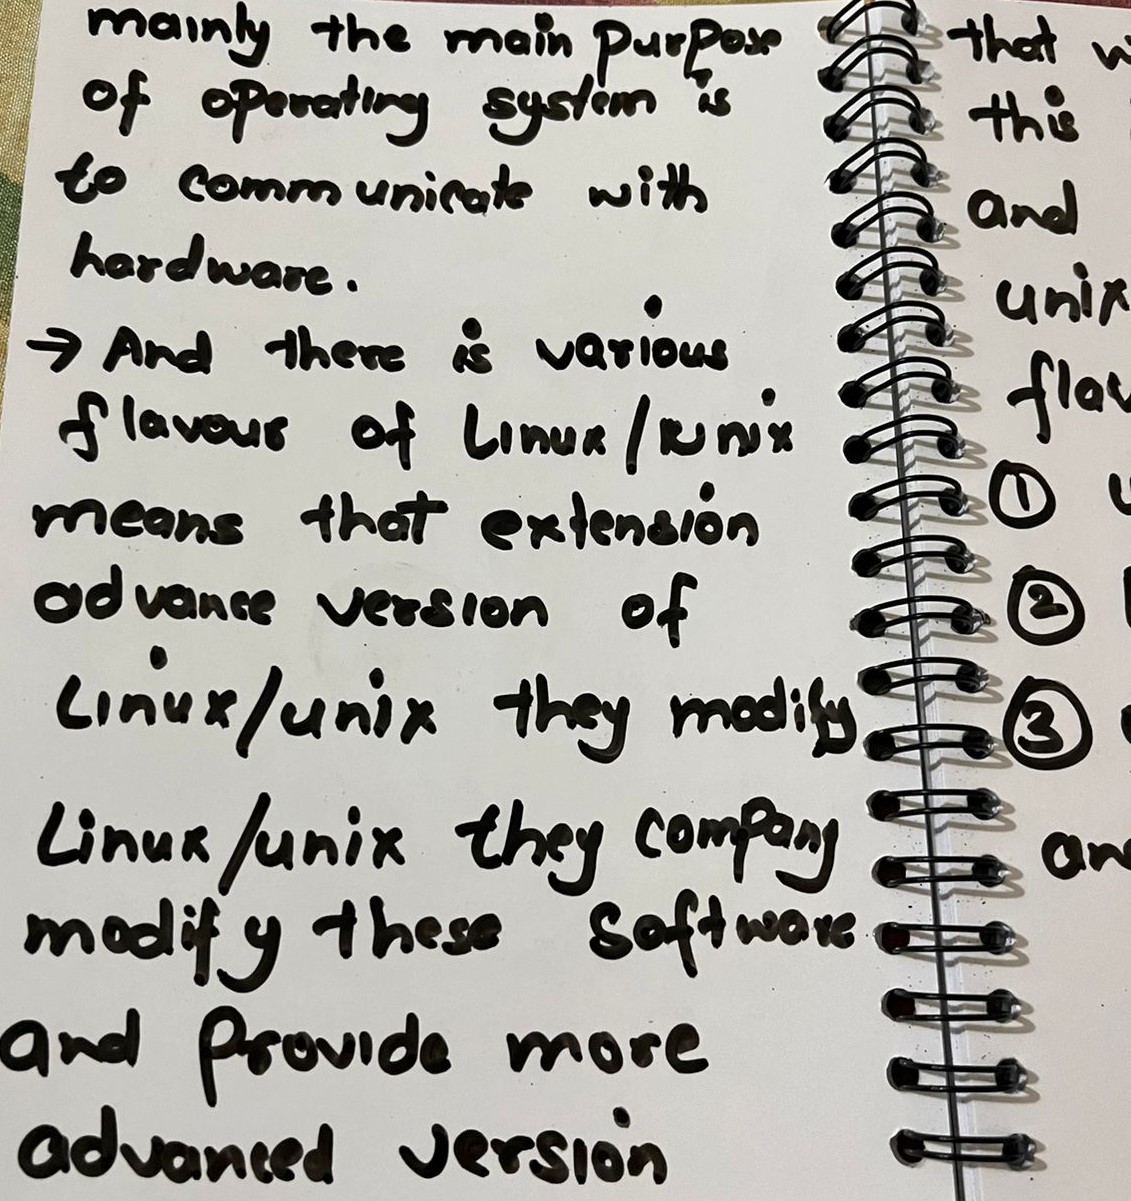 mainly the main purpose
of operating system is
to communicate with
hardware.
→ And there is various
flavour of Linux/unix
means that extension
advance version of
Linux/unix they modify
Linux/unix they company
modify these software
and provide more
advanced version
that
this
and
unix
①
②
③